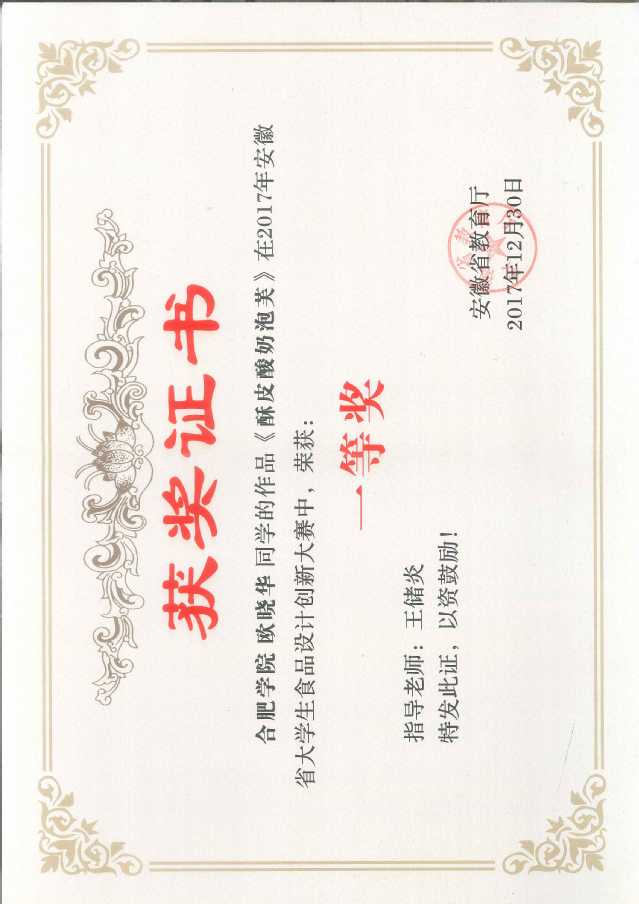 获奖证书
合肥学院 欧晓华 同学的作品《酥皮酸奶泡芙》在2017年安徽
省大学生食品设计创新大赛中，荣获：
一等奖
指导老师：王储炎
特发此证，以资鼓励！
安徽省教育厅
2017年12月30日